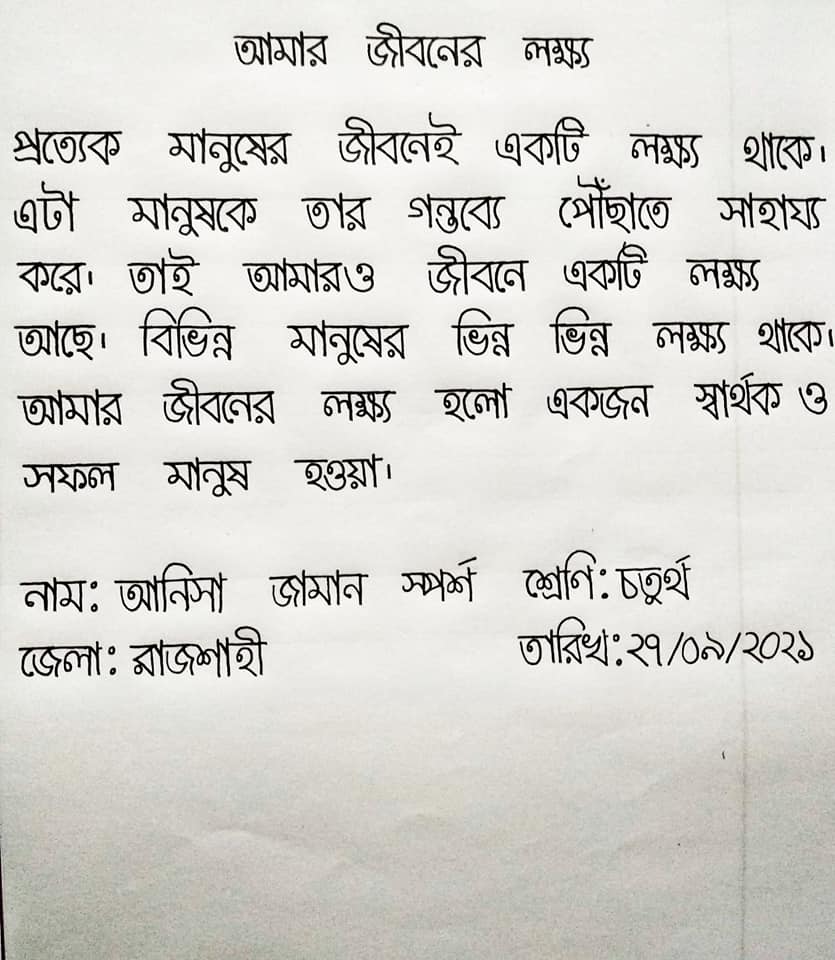 আমার জীবনের লক্ষ্য
প্রত্যেক মানুষের জীবনেই একটি লক্ষ্য থাকে।
এটা মানুষকে তার গন্তব্যে পৌঁছাতে সাহায্য
করে। তাই আমারও জীবনে একটি লক্ষ্য
আছে। বিভিন্ন মানুষের ভিন্ন ভিন্ন লক্ষ্য থাকে।
আমার জীবনের লক্ষ্য হলো একজন স্বার্থক ও
সফল মানুষ হওয়া।
নাম: আনিসা জামান স্পর্শ শ্রেণি: চতুর্থ
জেলা: রাজশাহী তারিখ: ২৭/০৯/২০২১